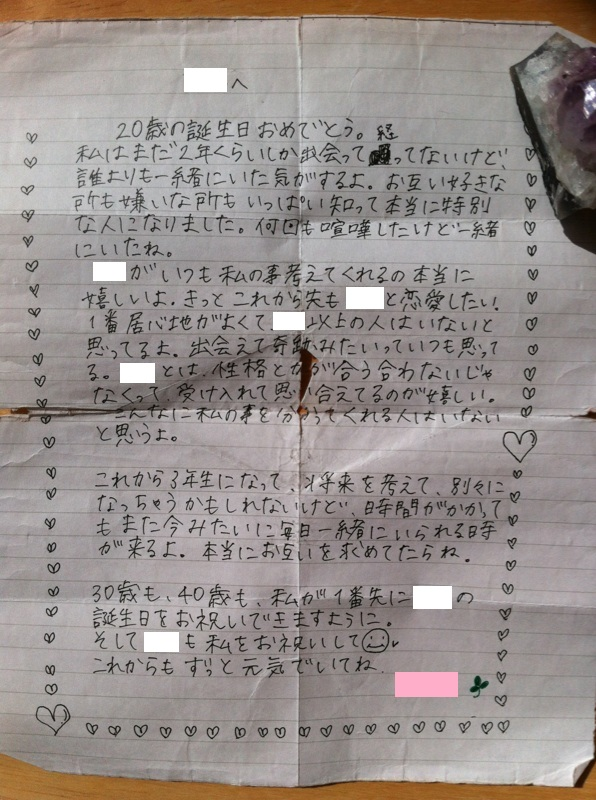 へ
20歳の誕生日おめでとう。経
私はまだ2年くらいしか出会ってってないけど、
誰よりも一緒にいた気がするよ。お互い好きな
所も嫌いな所もいっぱい知って本当に特別
な人になりました。何回も喧嘩したけど一緒
にいたね。
がいつも私の事考えてくれるの本当に
嬉しいよ。きっとこれから先もと恋愛したい!
1番居心地がよくて、以上の人はいないと
思ってるよ。出会えて奇跡みたいっていつも思って
る。とは、性格とかが合う合わないじゃ
なくって、受け入れて思い合えてるのが嬉しい。
こんなに私の事を分かってくれる人はいない
と思うよ。
これから3年生になって、将来を考えて、別々に
なっちゃうかもしれないけど、時間がかかって
もまた今みたいに毎日一緒にいられる時
が来るよ。本当にお互いを求めてたらね。
30歳も、40歳も、私が1番先にの
誕生日をお祝いできますように。
そしても私をお祝いして
これからもずっと元気でいてね